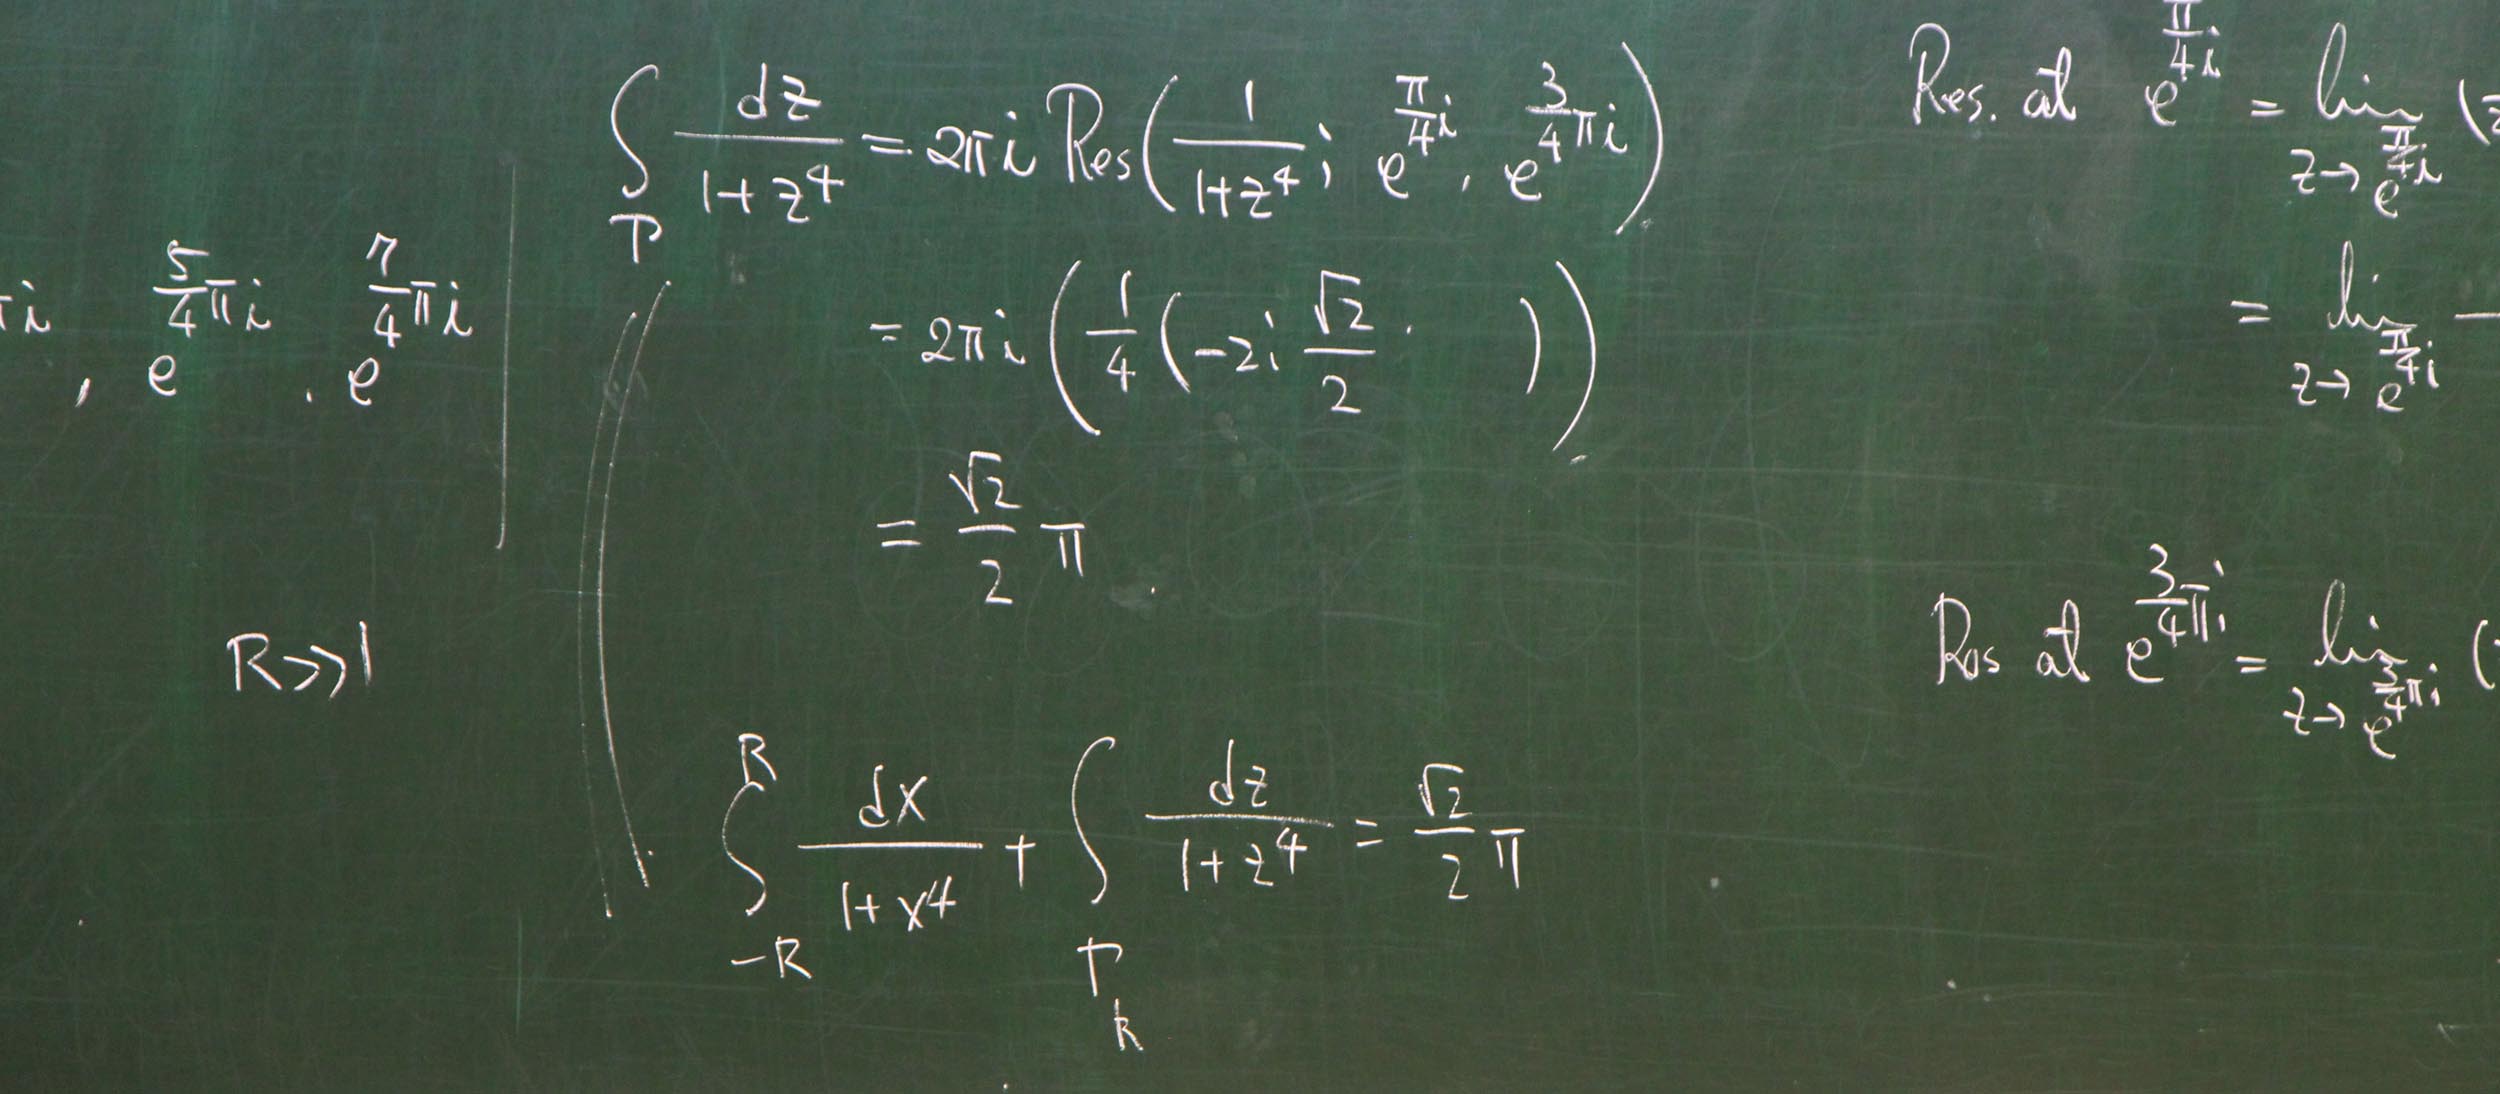 πi, e^{\frac{5}{4}πi}, e^{\frac{7}{4}πi}
R≫1
∫_Γ \frac{dz}{1+z^4} = 2πi Res(\frac{1}{1+z^4}; e^{\frac{π}{4}i}, e^{\frac{3}{4}πi})
= 2πi (\frac{1}{4} (-2i \frac{√2}{2} ))
= \frac{√2}{2} π.
∫_{-R}^{R} \frac{dx}{1+x^4} + ∫_{Γ_R} \frac{dz}{1+z^4} = \frac{√2}{2} π
Res. at e^{\frac{π}{4}i} = lim_{z→e^{\frac{π}{4}i}} (z
= lim_{z→e^{\frac{π}{4}i}}
Res at e^{\frac{3}{4}πi} = lim_{z→e^{\frac{3}{4}πi}} (